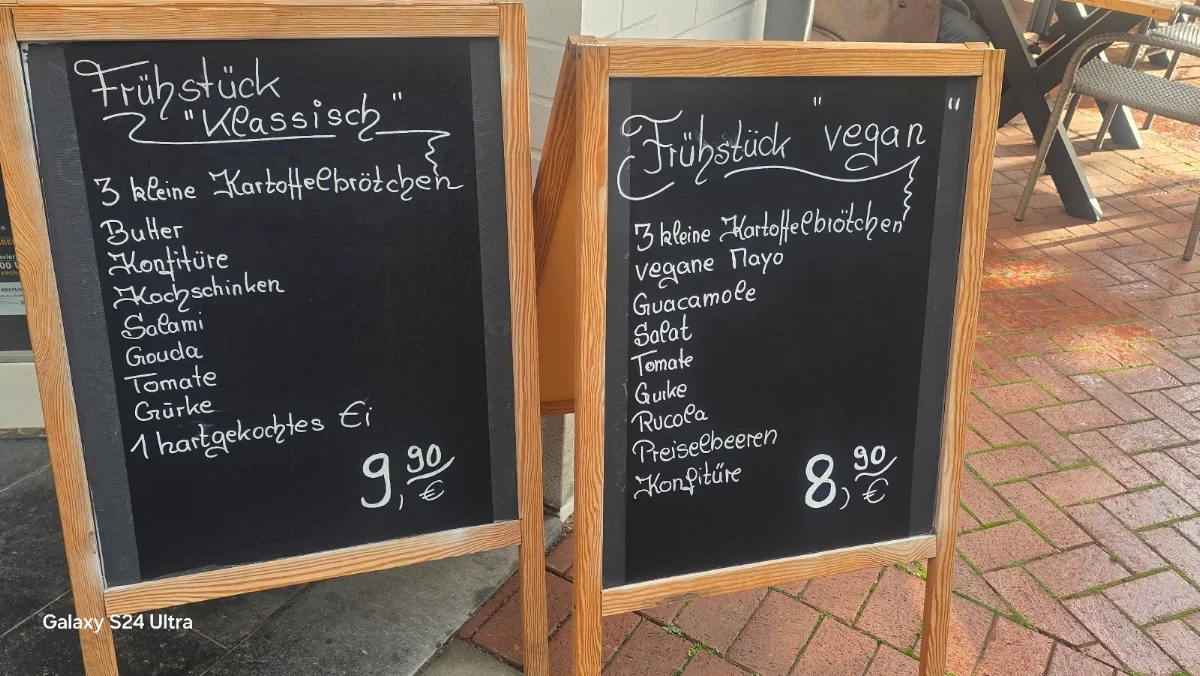 Frühstück
"Klassisch"
3 kleine Kartoffelbrötchen
Butter
Konfitüre
Kochschinken
Salami
Gouda
Tomate
Gürke
1 hartgekochtes Ei
9,90
€
Frühstück "vegan"
3 kleine Kartoffelbrötchen
vegane Mayo
Guacamole
Salat
Tomate
Gurke
Rucola
Preiselbeeren
Konfitüre
8,90
€
Galaxy S24 Ultra